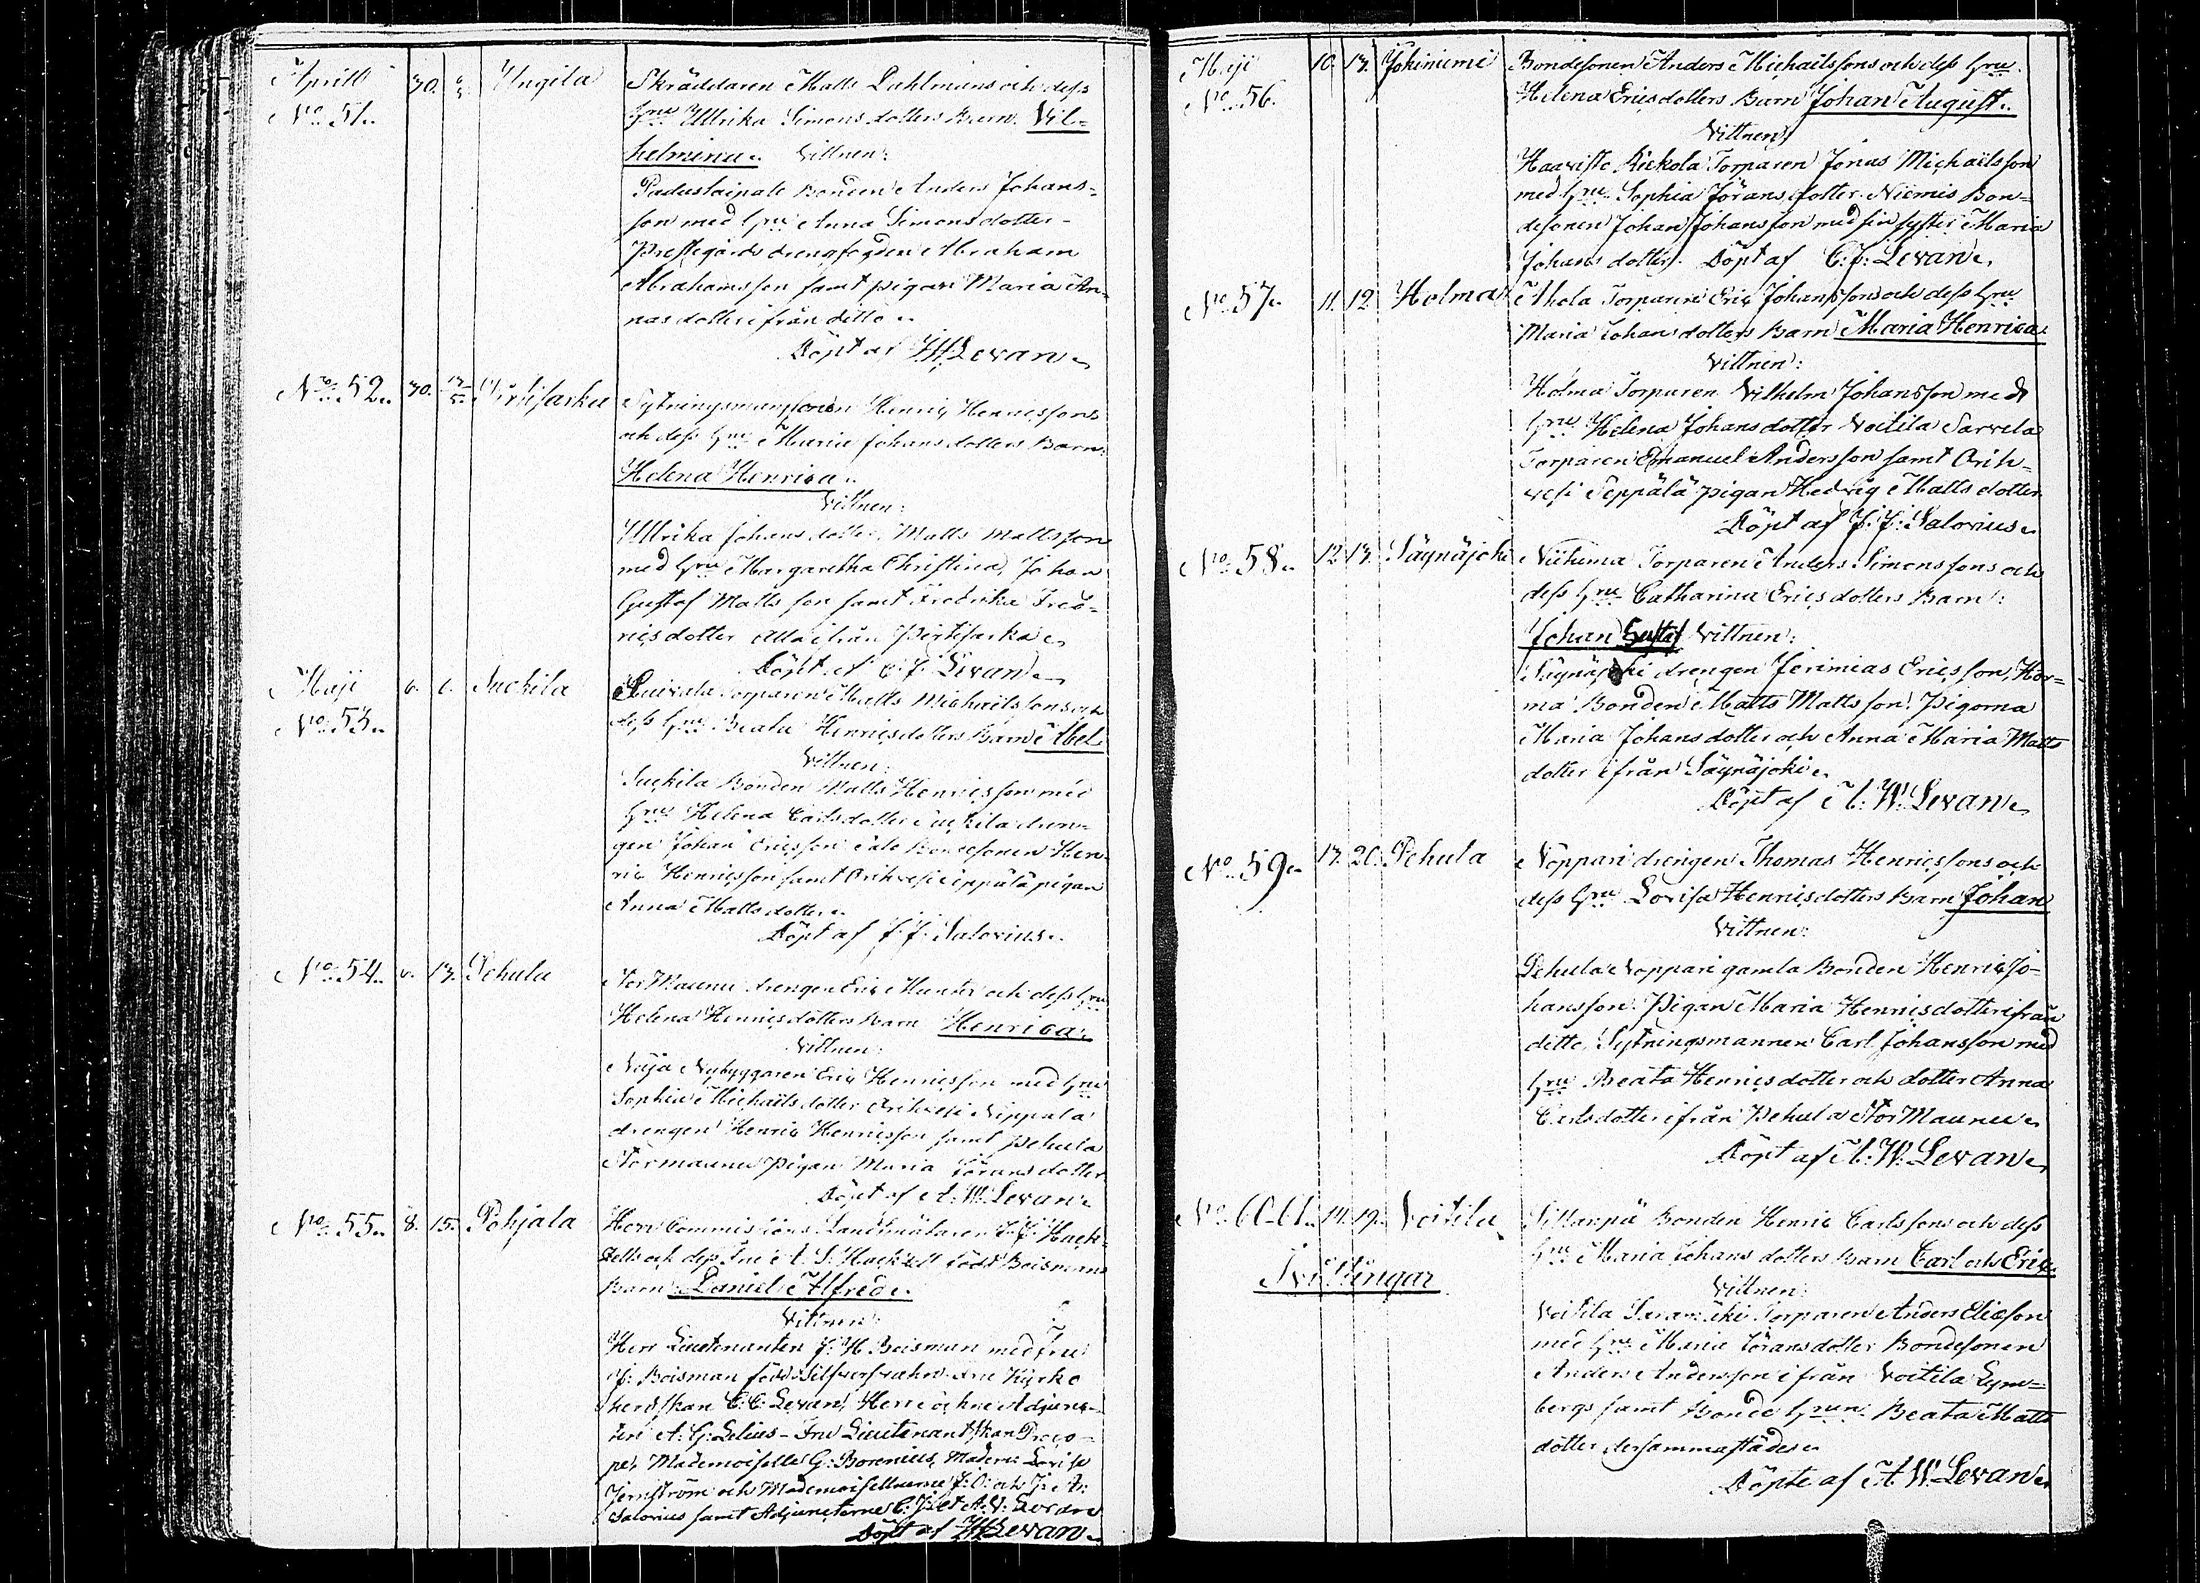 Aprill 30. 6/5. Yngila Skräddaren Matts Dahlmans och dess
No 51. Hru Ullrika Simonsdotters Barn Vil=
helmina. Vittnen:
Padustaipale Bonden Anders Johans=
son med Hru Anna Simonsdotter
Prestegårds drengfogden Abraham
Abrahamsson samt pigan Maria An=
nasdotter ifrån ditto.
Döpt af Levan.
No 52. 30. 13/5. Pirtisarka Sytningsmansonen Henric Henricssons
och dess Hru Maria Johansdotters Barn:
Helena Henrica.
Vittnen:
Ullrika Johansdotter, Matts Mattsson
med Hru Margaretha Christina, Johan
Gustaf Mattsson samt Fredrika Fred=
ricsdotter alla ifrån Pirtisarka.
Döpt af C. J. Levan.
Maji 6. 6. Suckila Torparen Matts Michailssons och
No 53. dess Hru Beata Henricsdotters Barn Abel.
Vittnen:
Suckila Bonden Matts Henricsson med
Hru Helena Carlsdotter Suckila dren=
gen Johan Ericsson Bondesonen Hen=
ric Henricsson samt Orihvesi Seppälä pigan
Anna Mattsdotter.
Döpt af J. J. Salovius.
No 54. 6. 13. Pehula Stor Maunu drengen Eric Munter och dess Hru
Helena Henricsdotters Barn Henrica.
Vittnen:
Nybyggaren Eric Henricsson med Hru
Sophia Michailsdotter Orihvesi
drengen Henric Henricsson samt Pehula
Stormaunu Pigan Maria Göransdotter
Döpt af A. W. Levan.
No 55. 8. 15. Pohjala Herr Commissions Landtmätaren J. F. Hack=
zells och dess Fru A. S. Hackzell född Boismans
Barn Daniel Alfred.
Vittnen:
Herr Lieutenanten J. H. Boisman med Fru
Boisman född Silfversvahn Fru Kyrko
herdskan C. C. Levan, Herr Adjunc=
ten A. G. Lilius – Fru Lieutenantskan Proco=
pe, Mademoiselle G. Borenius, Madem: Lovise
Jernström och Mademoisellerna J. O. och J. A.
Salovius samt Adjuncterne C. J. et A. W. Levan
Döpt af Levan.
Maji 10. 13. Jokiniemi Bondesonen Anders Michailssons och dess Hru
No 56. Helena Ericsdotters Barn Johan August.
Vittnen:
Haavisto Torparen Jonas Michailsson
med Hru Sophia Jöransdotter. Niemis Bon=
desonen Johan Johansson med sin syster Maria
Johansdotter. Döpt af C. J. Levan.
No 57. 11. 12. Holma Torparen Eric Johanssons och dess Hru
Maria Johansdotters Barn Maria Henrica.
Vittnen:
Holma Torparen Vilhelm Johansson med
Hru Helena Johansdotter Voitila Sarvela
Torparen Emanuel Andersson samt Orih=
vesi Seppälä pigan Hedvig Mattsdotter
Döpt af J. J. Salovius.
No 58. 12. 13. Säynäjoki Torparen Anders Simonssons och
dess Hru Catharina Ericsdotters Barn:
Johan Gustaf Vittnen:
Säynäjoki drengen Jerimias Ericsson, Hor=
ma Bonden Matts Mattsson. Pigorna
Maria Johansdotter och Anna Maria Matts
dotter ifrån Säynäjoki.
Döpt af A. W. Levan.
No 59. 13. 20. Pehula Noppari drengen Thomas Henricssons och
dess Hru Lovisa Henricsdotters Barn Johan
Vittnen:
Pehula Noppari gamla Bonden Henric Jo=
hansson. Pigan Maria Henricsdotter ifrån
ditto, Sytningsmannen Carl Johansson med
Hru Beata Henricsdotter och dotter Anna
Carlsdotter ifrån Pehula Stor Maunu.
Döpt af A. W. Levan.
No 60–61. 14. 19. Voitila Sillanpä Bonden Henric Carlssons och dess
Hru Maria Johansdotters Barn Carl och Eric.
Tvillingar
Vittnen:
Voitila Torparen Anders Eliæson
med Hru Maria Göransdotter Bondesonen
Anders Andersson ifrån Voitila Lym=
bergs samt Bonde Hrun Beata Matts
dotter dersammastädes.
Döpte af A. W. Levan.